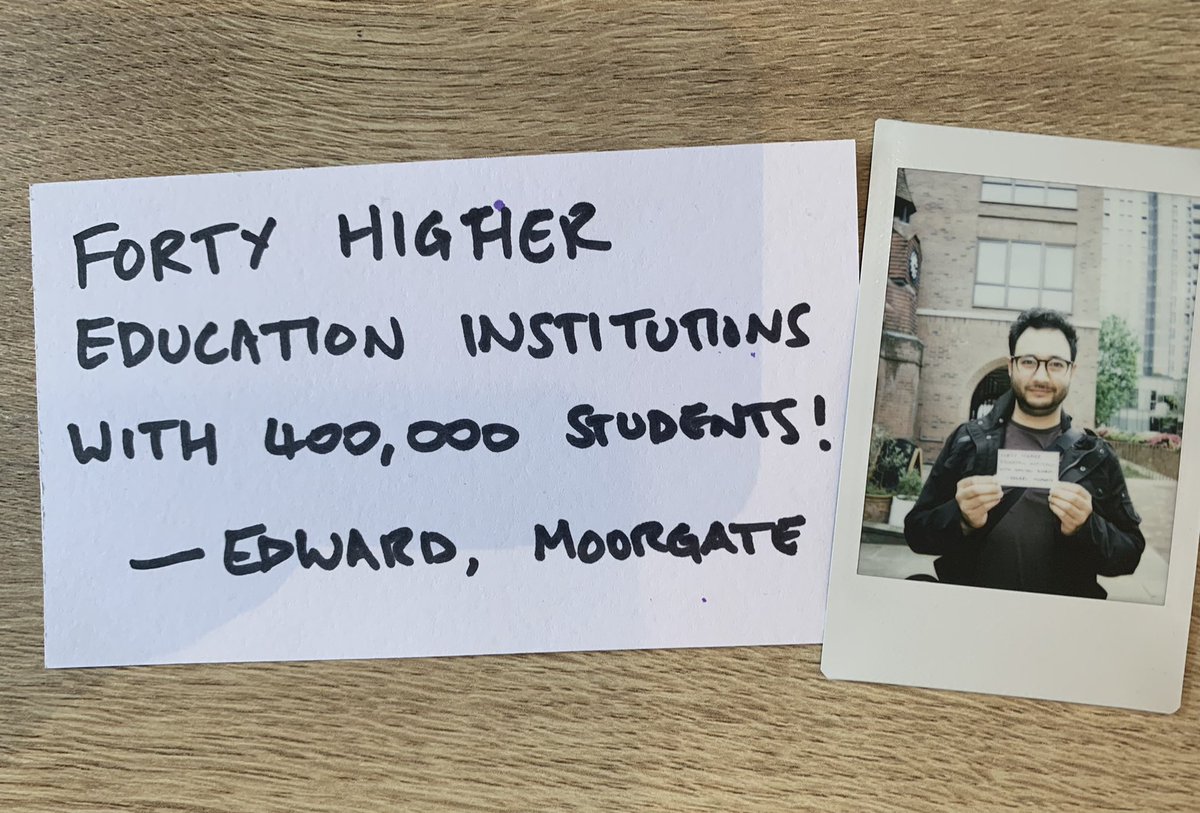 FORTY HIGHER
EDUCATION INSTITUTIONS
WITH 400,000 STUDENTS!
— EDWARD, MOORGATE